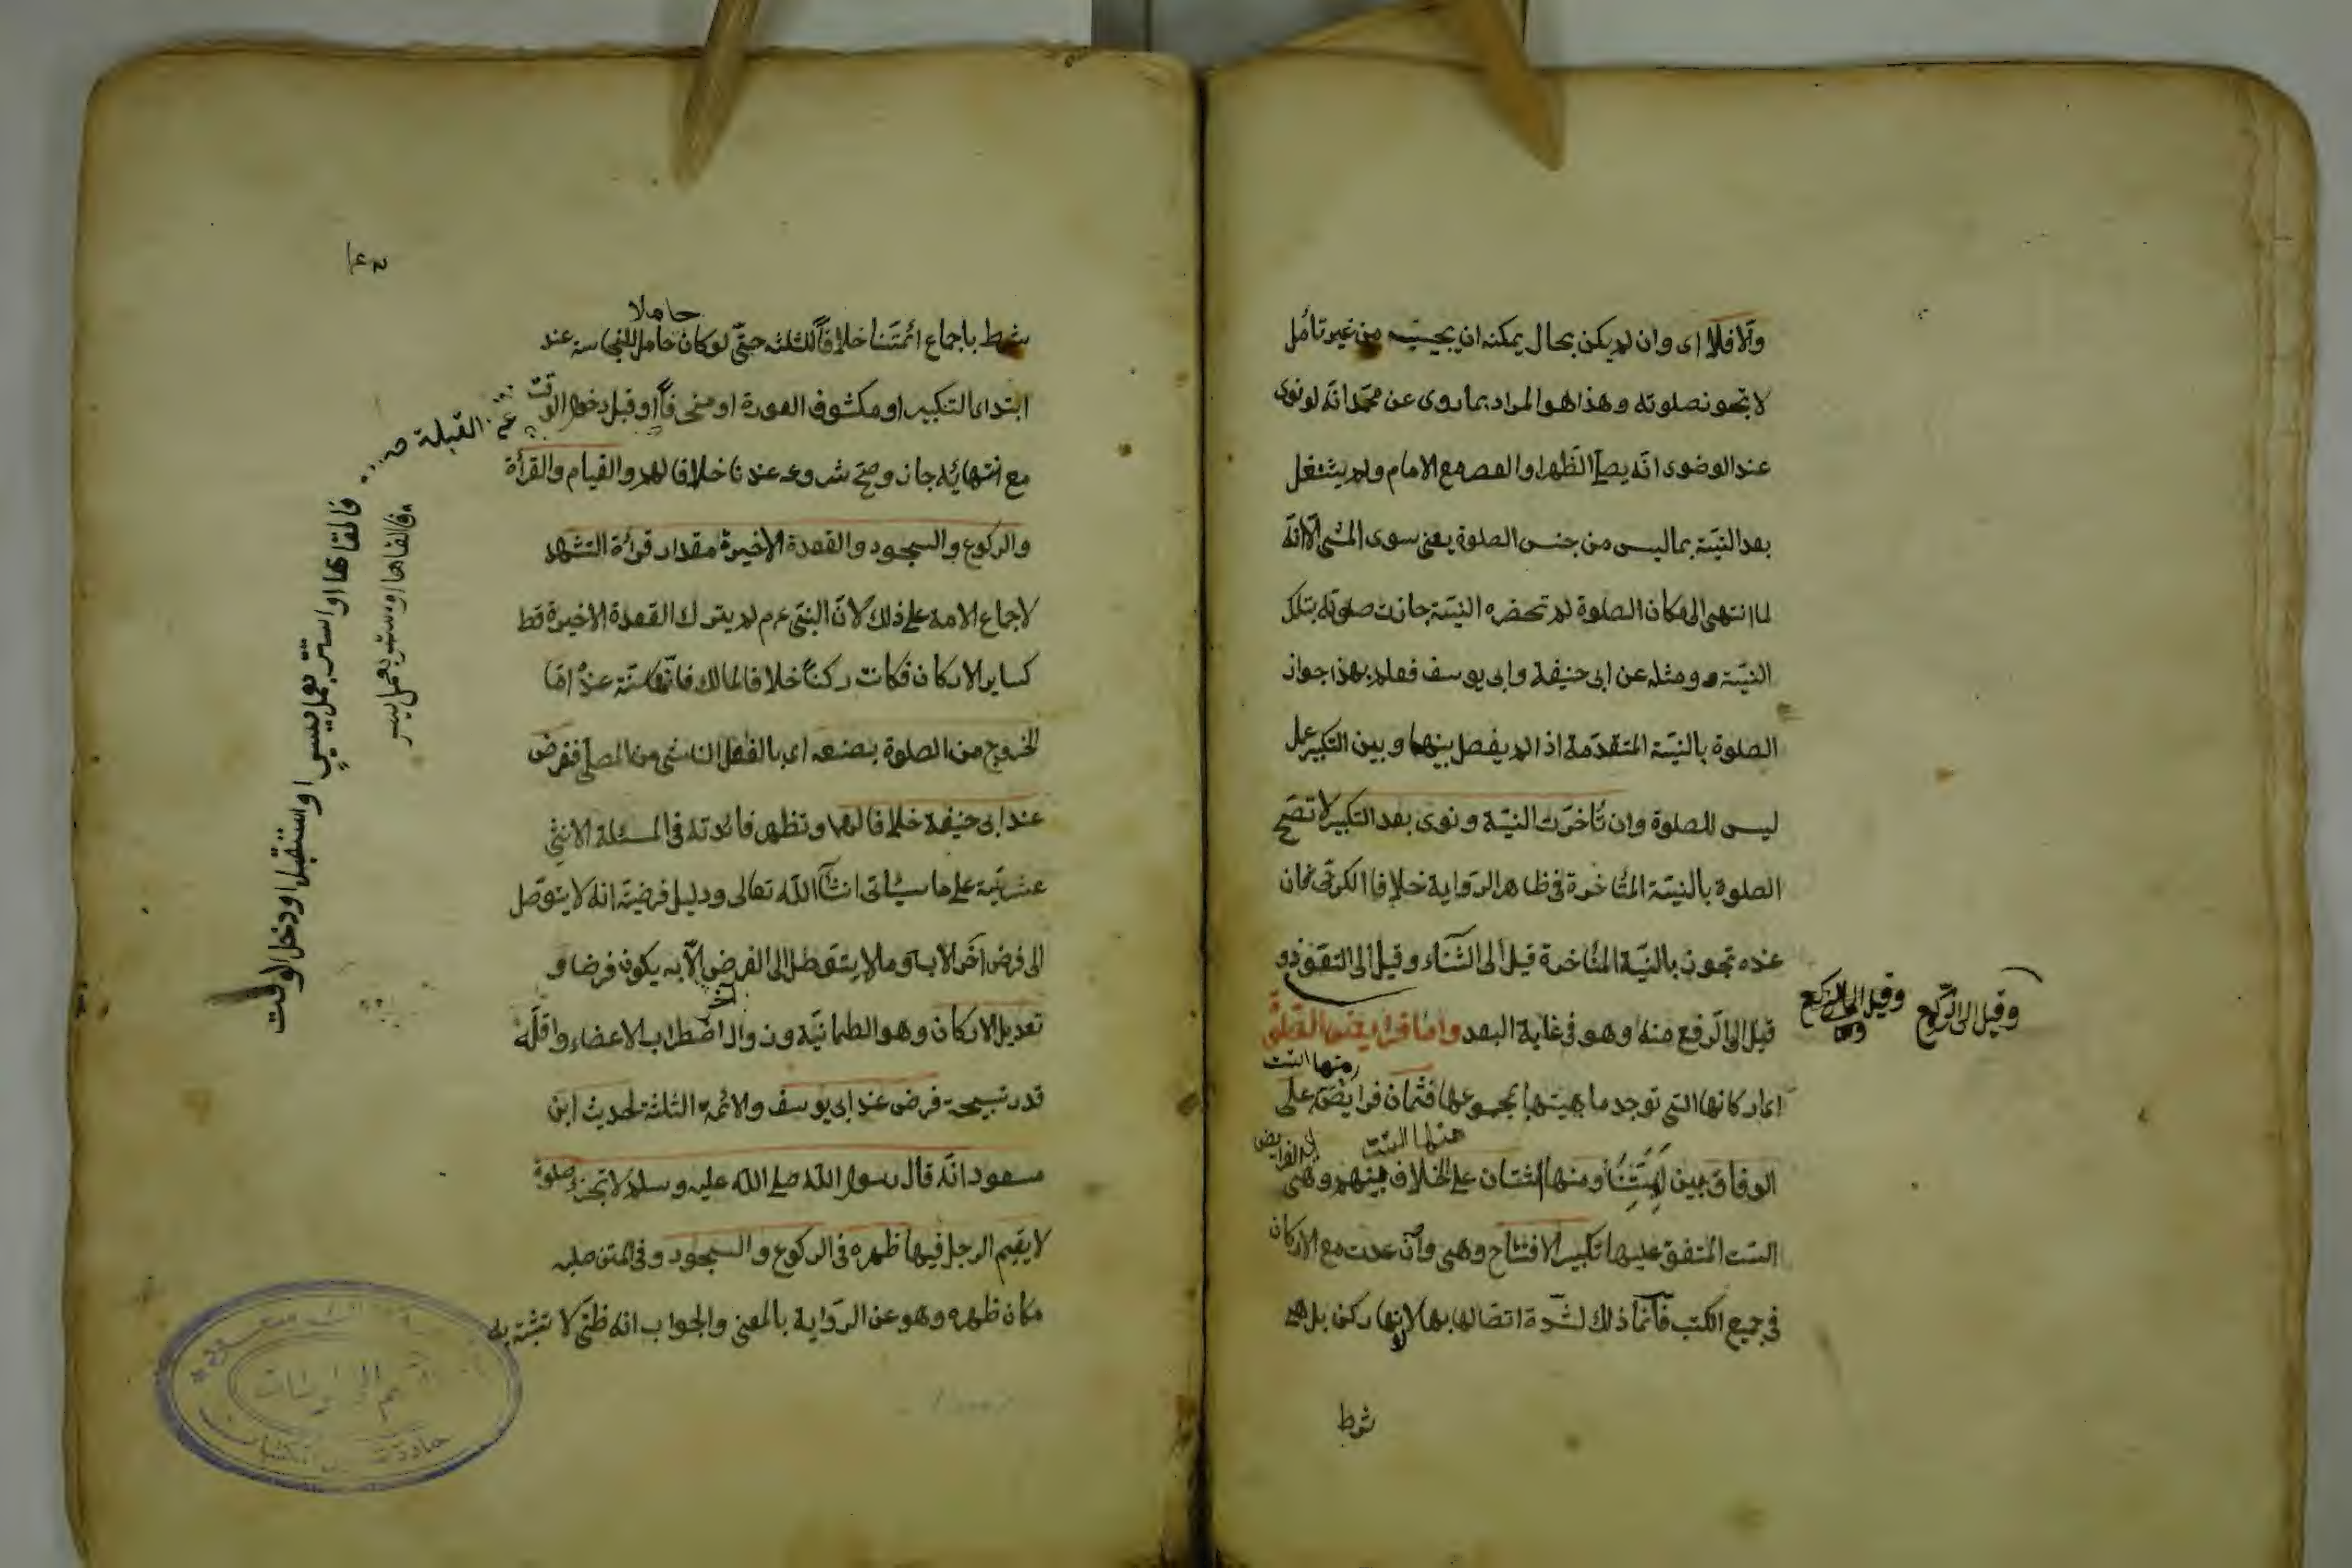 والا فلا اى وان لم يكن بحال يمكنه ان يجيب من غير تأمل
لا تجوز صلوته وهذا هو المراد بما روى عن محمد انه لو نوى
عند الوضوى انه يصلى الظهر او العصر مع الامام ولم يشتغل
بعد النية بما ليس من جنس الصلوة يعنى سوى المشى الا انه
لما انتهى الى مكان الصلوة لم تحضره النية جازت صلوته بتلك
النية ومثله عن ابى حنيفة وابى يوسف فعلم بهذا جواز
الصلوة بالنية المتقدمة اذا لم يفصل بينها وبين التكبير عمل
ليس للصلوة وان تأخرت النية ونوى بعد التكبير لا تصح
الصلوة بالنية المتأخرة فى ظاهر الرواية خلافا الكرخى فان
عنده تجوز بالنية المتأخرة قيل الى الثناء وقيل الى التعوذ و
وقيل الى الركوع
وقيل الى الركوع
قيل الى الرفع منه وهو فى غاية البعد واما فرايض الصلوة
اى اركانها التى توجد ماهيتها بمجموعها فثمان فرايض على
منها الست
الوفاق بين ائمتنا ومنها اثنتان على الخلاف بينهم وهى
منها الست
اى الفرايض
الست المتفق عليها تكبير الافتتاح وهى وان عدت مع الاركان
فى جميع الكتب فانما ذلك لشدة اتصالها بها لا انها ركن بل هى
شرط
١٤٢
حاملا
شرط باجماع ائمتنا خلافا للثلثه حتى لو كان حامل للنجاسة عند
ابتداى التكبير او مكشوف العورة او منحرفا او قبل دخول الوقت
عن القبلة صح
مع انتهائه جاز وصح شروعه عندنا خلافا لهم والقيام والقرأة
والركوع والسجود والقعدة الاخيرة مقدار قرأة التشهد
لاجماع الامة على ذلك لان النبى عم لم يترك القعدة الاخيرة قط
كساير الاركان فكانت ركنا خلافا لمالك فانها سنة عنده اما
الخروج من الصلوة بصنعه اى بالفعل الناشى من المصلى ففرض
عند ابى حنيفة خلافا لهما وتظهر فائدته فى المسئلة الاثنى
عشرية على ما سيأتى ان شآ الله تعالى ودليل فرضيته انه لا يتوصل
الى فرض آخر الا به وما لا يتوصل الى الفرض الا به يكون فرضا و
آخر
تعديل الاركان وهو الطمانية وزوال اضطراب الاعضاء واقله
قدر تسبيحة فرض عند ابى يوسف والائمة الثلثة لحديث ابن
مسعود انه قال رسول الله صلى الله عليه وسلم لا تجزء صلوة
لا يقيم الرجل فيها ظهره فى الركوع والسجود وفى المتن صلبه
مكان ظهره وهو عن الرواية بالمعنى والجواب انه ظنى لا تثبت به
فالقاها او استتر بعمل يسير او استقبل او دخل الوقت
فالقاها او ستر بعمل يسير
قسم